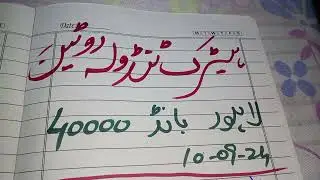 Date:
ہیٹرک ٹنڈولہ روٹین
لاہور بانڈ 40000
10-09-24